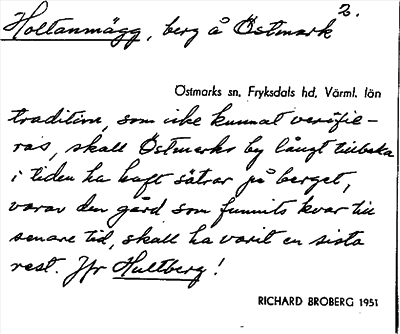 Holtanmägg, berg å Östmark 2.
Östmarks sn, Fryksdals hd, Värml. län
tradition, som icke kunnat verifie-
ras, skall Östmarks by långt tillbaka
i tiden ha haft sätrar på berget,
varav den gård som funnits kvar till
senare tid, skall ha varit en sista
rest. Jfr Hultberg!
RICHARD BROBERG 1951